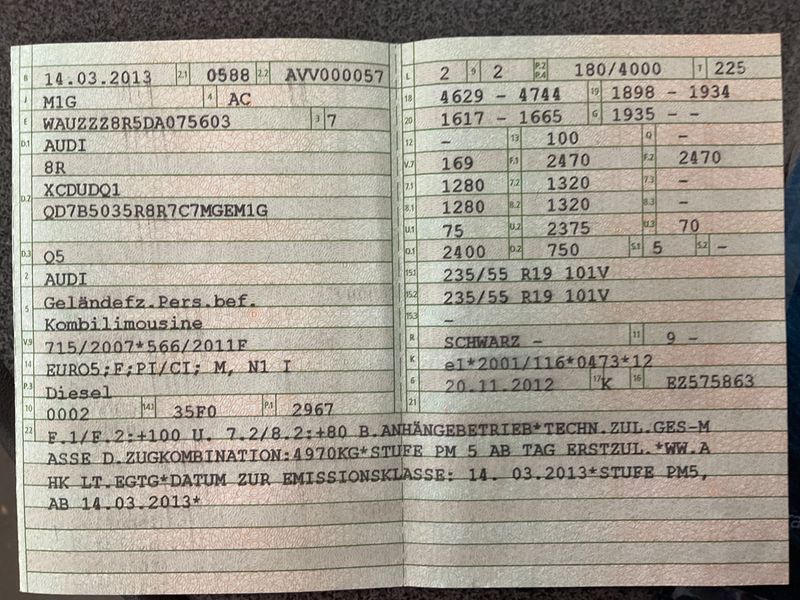 B 14.03.2013 2.1 0588 2.2 AVV000057
J M1G 4 AC
E WAUZZZ8R5DA075603 3 7
D.1 AUDI
8R
D.2 XCDUDQ1
QD7B5035R8R7C7MGEM1G
D.3 Q5
2 AUDI
5 Geländefz.Pers.bef.
Kombilimousine
V.9 715/2007*566/2011F
14 EURO5;F;PI/CI; M, N1 I
P.3 Diesel
10 0002 14.1 35F0 P.1 2967
L 2 9 2 P.2 P.4 180/4000 T 225
18 4629 - 4744 19 1898 - 1934
20 1617 - 1665 G 1935 - -
12 - 13 100 Q -
V.7 169 F.1 2470 F.2 2470
7.1 1280 7.2 1320 7.3 -
8.1 1280 8.2 1320 8.3 -
U.1 75 U.2 2375 U.3 70
O.1 2400 O.2 750 S.1 5 S.2 -
15.1 235/55 R19 101V
15.2 235/55 R19 101V
15.3 -
R SCHWARZ - 11 9 -
K e1*2001/116*0473*12
6 20.11.2012 17 K 16 EZ575863
21
22 F.1/F.2:+100 U. 7.2/8.2:+80 B.ANHÄNGEBETRIEB*TECHN.ZUL.GES-M
ASSE D.ZUGKOMBINATION:4970KG*STUFE PM 5 AB TAG ERSTZUL.*WW.A
HK LT.EGTG*DATUM ZUR EMISSIONSKLASSE: 14. 03.2013*STUFE PM5,
AB 14.03.2013*